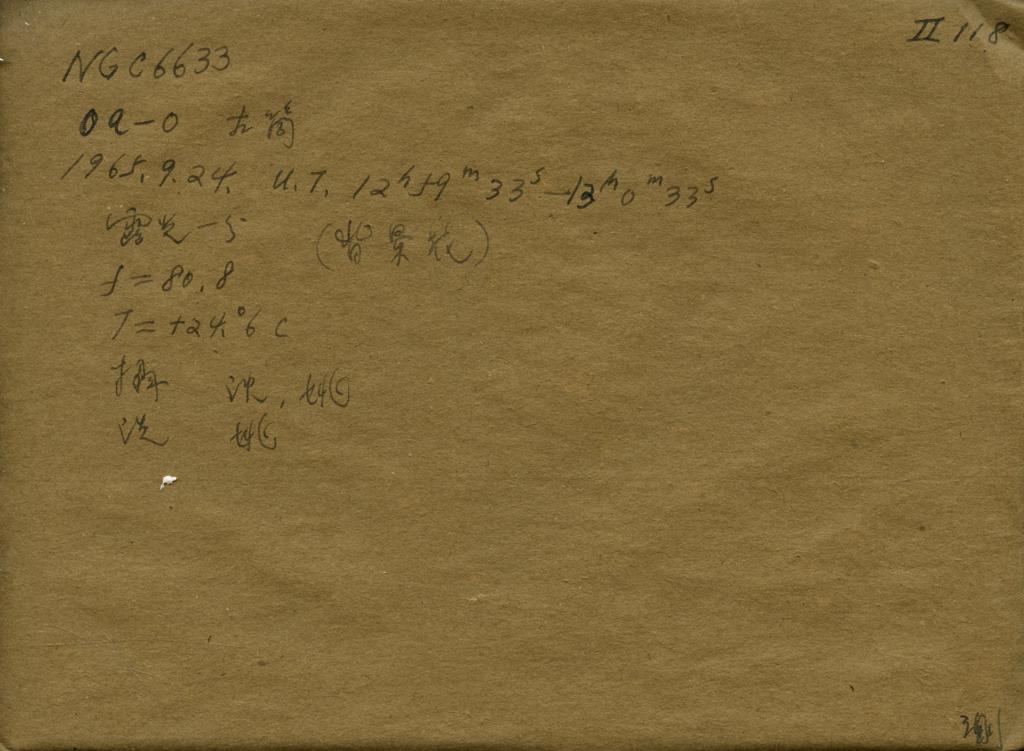 II 118
NGC6633
0a-0 左筒
1965.9.24. U.T. 12h59m33s-13h0m33s
露光一分 (背景恍)
f=80.8
T=+24.°6 C
摄 沈, 姚
洗 姚